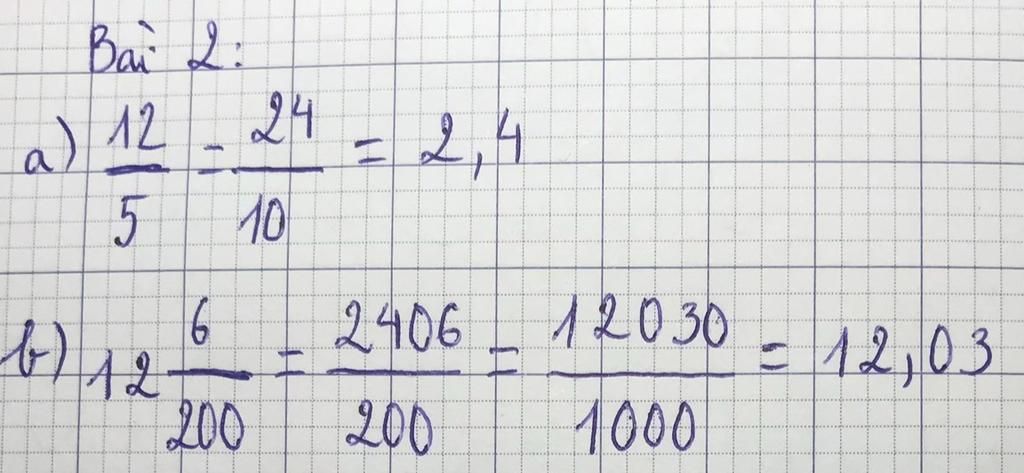 Bài 2:
a) 12/5 = 24/10 = 2,4
b) 12 6/200 = 2406/200 = 12030/1000 = 12,03